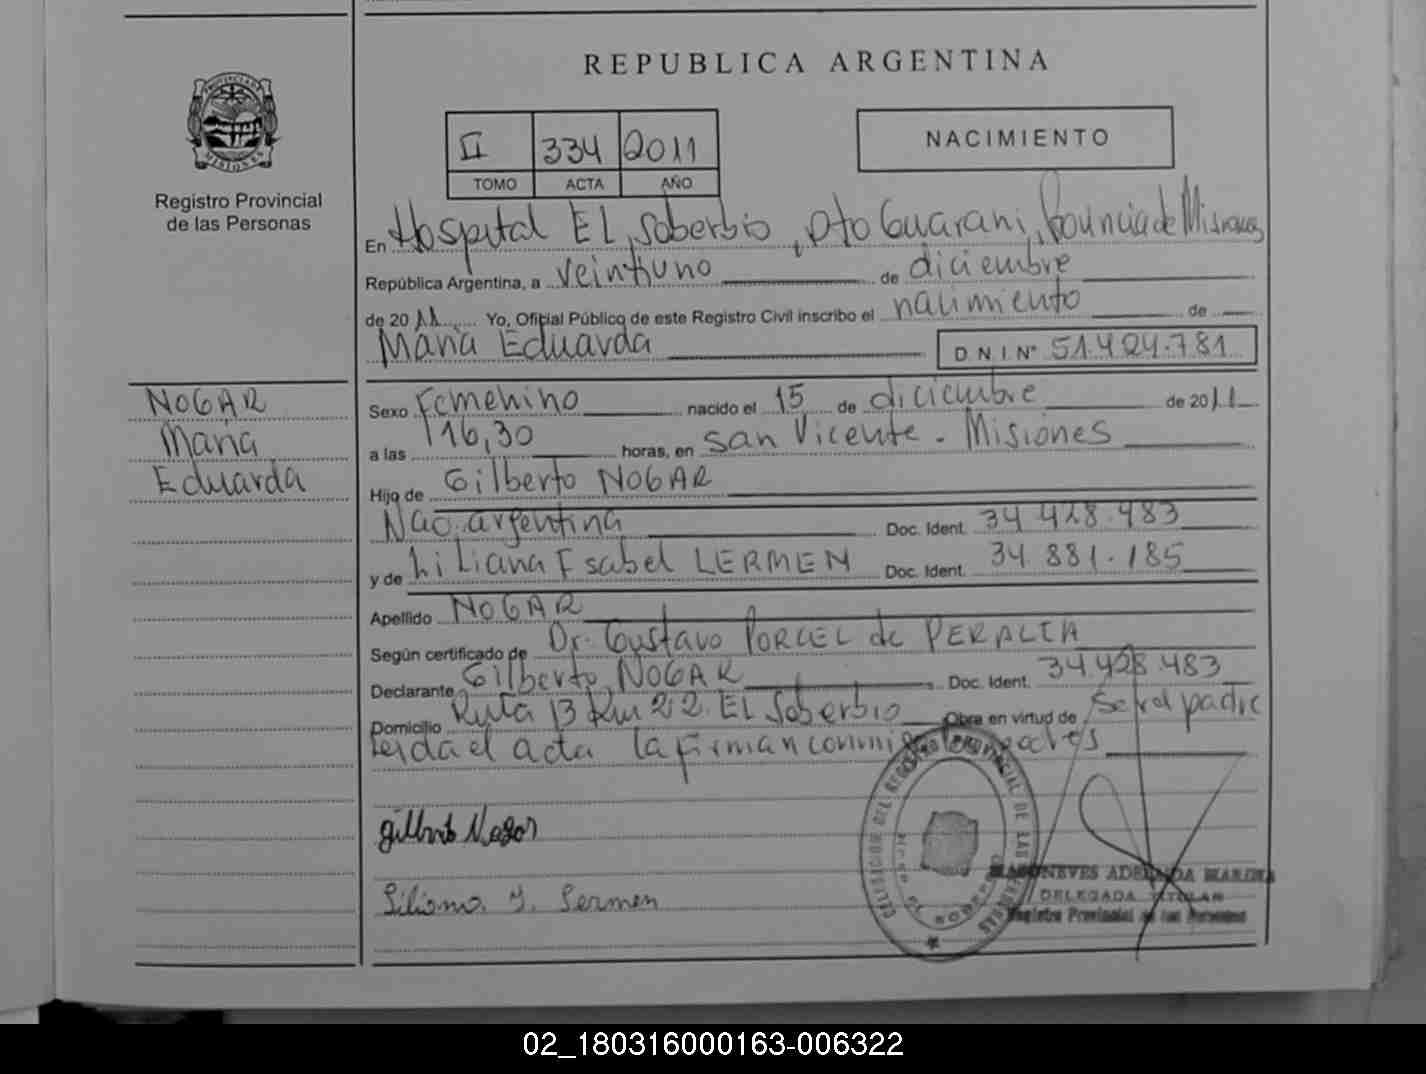 REPUBLICA ARGENTINA
PROVINCIA DE
MISIONES
Registro Provincial
de las Personas
II 334 2011
TOMO ACTA AÑO
NACIMIENTO
En Hospital El Soberbio, Dto Guarani, Provincia de Misiones
República Argentina, a veintiuno de diciembre
de 2011 Yo, Oficial Público de este Registro Civil inscribo el nacimiento de
Maria Eduarda D.N.I. Nº 51.424.781
NOGAR
Maria
Eduarda
Sexo Femenino nacido el 15 de diciembre de 2011
a las 16,30 horas, en San Vicente - Misiones
Hijo de Gilberto NOGAR
Nac. argentina Doc. Ident. 34 428.483
y de Liliana Isabel LERMEN Doc. Ident. 34.881.185
Apellido NOGAR
Según certificado de Dr. Gustavo PORCEL de PERALTA
Declarante Gilberto NOGAR Doc. Ident. 34.428.483
Domicilio Ruta 13 Km 22. El Soberbio Obra en virtud de Ser el padre
Leida el acta la firman conmigo los padres
Gilberto Nogar
Liliana I. Lermen
DELEGADA TITULAR
Registro Provincial de las Personas
02_180316000163-006322